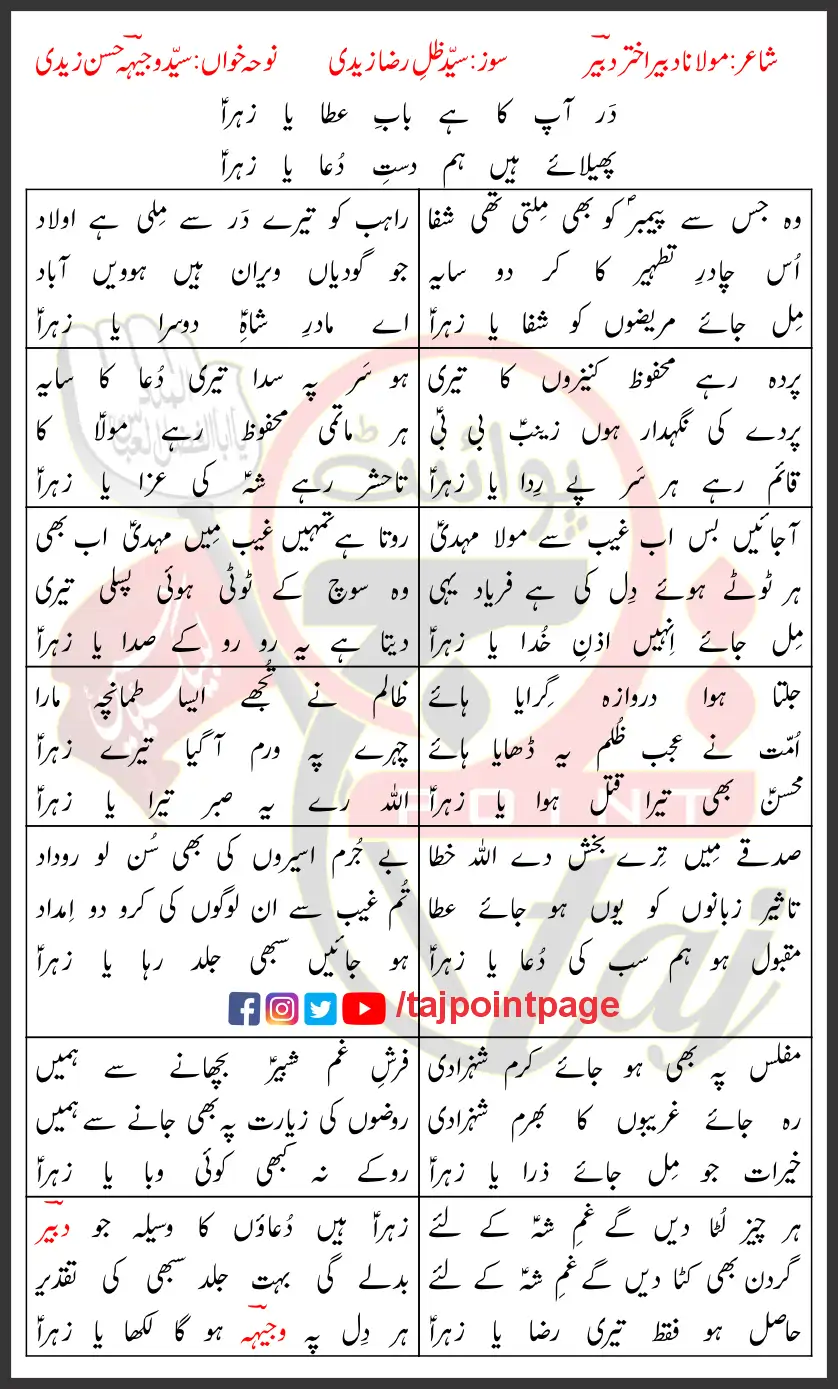 شاعر: مولانا دبیر اختر دبیرؔ سوز: سیّد ظلِ رضا زیدی نوحہ خواں: سیّد وجیہہؔ حسن زیدی
دَر آپ کا ہے بابِ عطا یا زہراؑ
پھیلائے ہیں ہم دستِ دُعا یا زہراؑ
وہ جس سے پیمبرؐ کو بھی مِلتی تھی شفا
اُس چادرِ تطہیر کا کر دو سایہ
مِل جائے مریضوں کو شفا یا زہراؑ
راہب کو تیرے دَر سے مِلی ہے اولاد
جو گودیاں ویران ہیں ہوویں آباد
اے مادرِ شاہِؑ دوسرا یا زہراؑ
پردہ رہے محفوظ کنیزوں کا تیری
پردے کی نگہدار ہوں زینبؑ بی بیؑ
قائم رہے ہر سَر پے رِدا یا زہراؑ
ہو سَر پہ سدا تیری دُعا کا سایہ
ہر ماتمی محفوظ رہے مولاؑ کا
تاحشر رہے شہؑ کی عزا یا زہراؑ
آجائیں بس اب غیب سے مولا مہدیؑ
ہر ٹوٹے ہوئے دِل کی ہے فریاد یہی
مِل جائے اِنہیں اذنِ خُدا یا زہراؑ
روتا ہے تمہیں غیب میں مہدیؑ اب بھی
وہ سوچ کے ٹوٹی ہوئی پسلی تیری
دیتا ہے یہ رو رو کے صدا یا زہراؑ
جلتا ہوا دروازہ گِرایا ہائے
اُمّت نے عجب ظُلم یہ ڈھایا ہائے
محسنؑ بھی تیرا قتل ہوا یا زہراؑ
ظالم نے تُجھے ایسا طمانچہ مارا
چہرے پہ ورم آگیا تیرے زہراؑ
اللہ رے یہ صبر تیرا یا زہراؑ
صدقے مِیں تِرے بخش دے اللہ خطا
تاثیر زبانوں کو یوں ہو جائے عطا
مقبول ہو ہم سب کی دُعا یا زہراؑ
بے جُرم اسیروں کی بھی سُن لو روداد
تُم غیب سے ان لوگوں کی کرو دو اِمداد
ہو جائیں سبھی جلد رہا یا زہراؑ
/tajpointpage
مفلس پہ بھی ہو جائے کرم شہزادی
رہ جائے غریبوں کا بھرم شہزادی
خیرات جو مِل جائے ذرا یا زہراؑ
فرشِ غم شبیرؑ بچھانے سے ہمیں
روضوں کی زیارت پہ بھی جانے سے ہمیں
روکے نہ کبھی کوئی وبا یا زہراؑ
ہر چیز لُٹا دیں گے غمِ شہؑ کے لئے
گردن بھی کٹا دیں گے غمِ شہؑ کے لئے
حاصل ہو فقط تیری رضا یا زہراؑ
زہراؑ ہیں دُعاؤں کا وسیلہ جو دبیرؔ
بدلے گی بہت جلد سبھی کی تقدیر
ہر دِل پہ وجیہہؔ ہو گا لکھا یا زہراؑ
پوائنٹ
تاج
POINT
taj